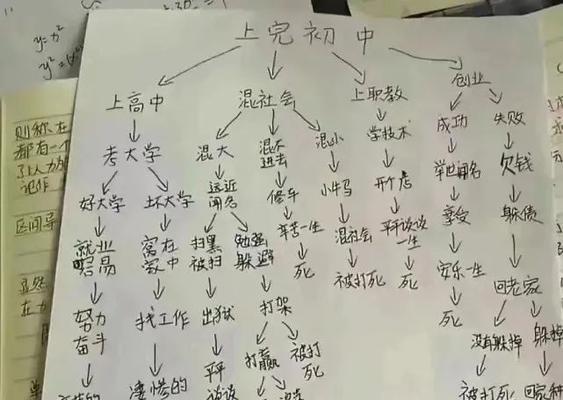 上完初中
上高中 混社会 上职教 创业
考大学 混大 混不进去 混小 学技术 成功 失败
好大学 坏大学 远近闻名 修车 小牛马 开个店 举世闻名 欠钱
就业容易 窝在家中 扫黑被扫 勉强躲避 辛苦一生 混社会 平平谈谈一生 享受 躲债
努力奋斗 找工作 出狱 打架 死 被打死 死 安乐一生 回老家
凄惨的 平平谈谈 打赢 被打死 死 没有躲掉 躲掉
被打死 回家种
y=x²
y²=
则称在
都有一个
了以人力
记作
区间